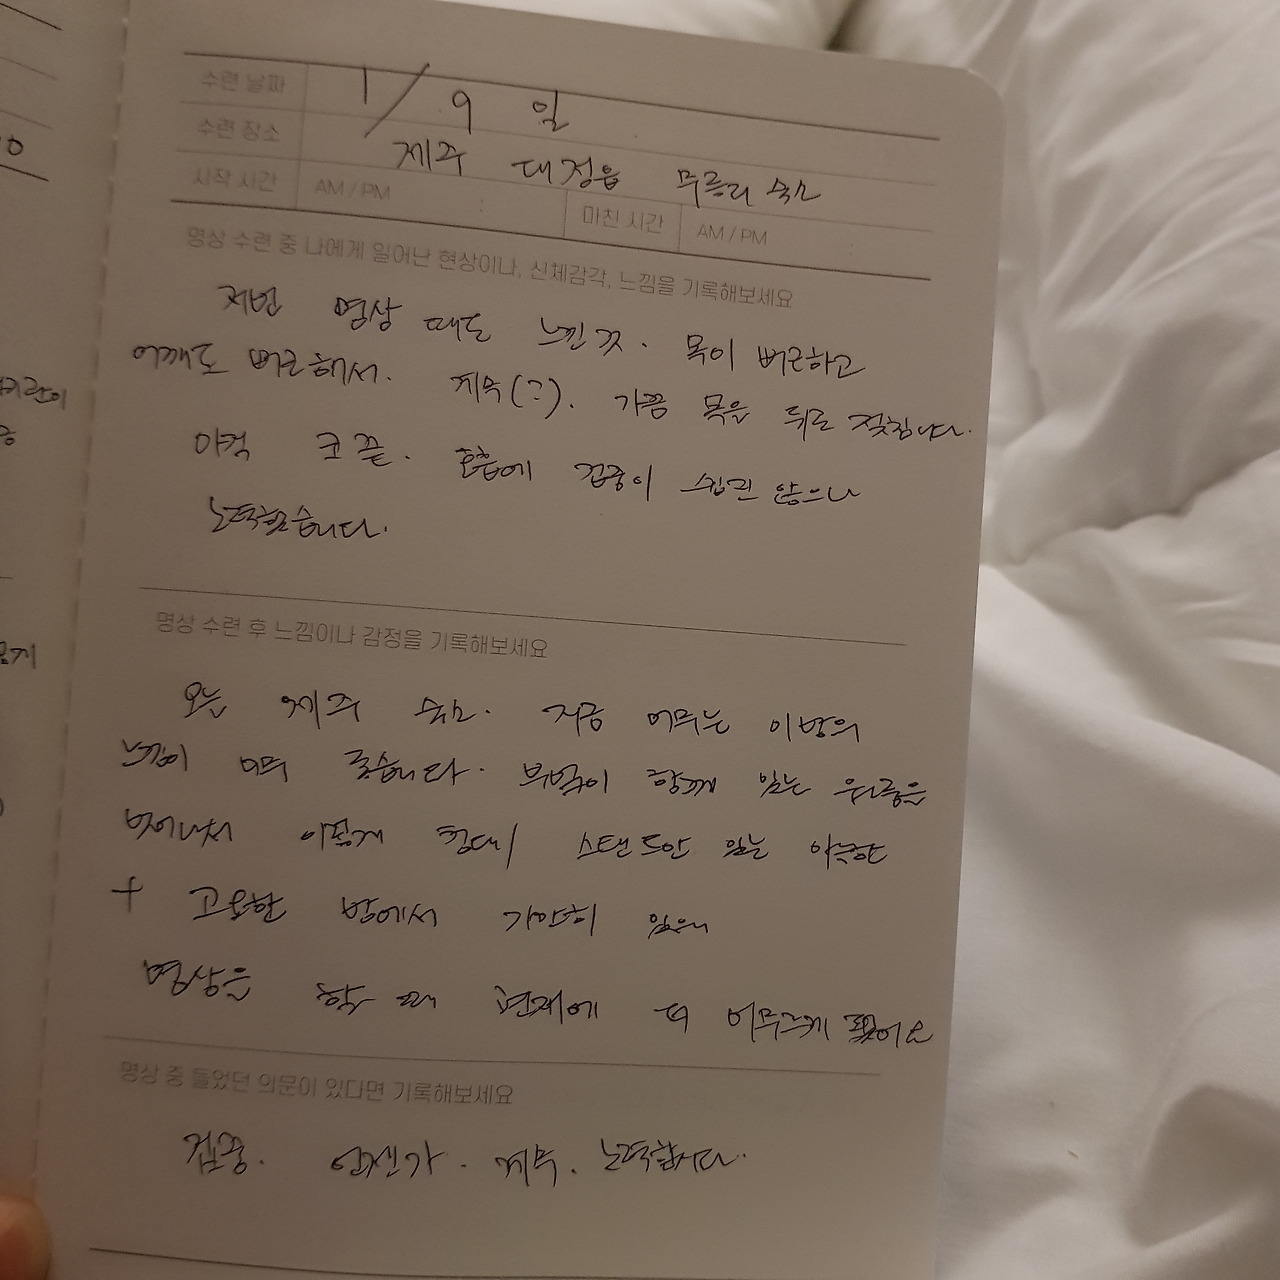 수련 날짜 1/9 일
수련 장소 제주 대정읍 무릉리 숙소
시작 시간 AM / PM : 마친 시간 AM / PM :
명상 수련 중 나에게 일어난 현상이나, 신체감각, 느낌을 기록해보세요
저번 명상 때도 느낀 것. 목이 뻐근하고
어깨도 뻐근해서. (?). 가끔 목을 뒤로 젖힙니다.
아직 코 끝. 호흡에 집중이 쉽진 않으나
노력했습니다.
명상 수련 후 느낌이나 감정을 기록해보세요
오늘 제주 숙소. 지금 머무는 이 방의
느낌이 너무 좋습니다. 북적이 함께 있는
벗어나서 이렇게 침대 스탠드만 있는 아늑한
+ 고요한 방에서 가만히 있으니
명상을 할 때 현재에 더 머무르게 됐어요
명상 중 들었던 의문이 있다면 기록해보세요
집중. 언젠가. 노력합니다.